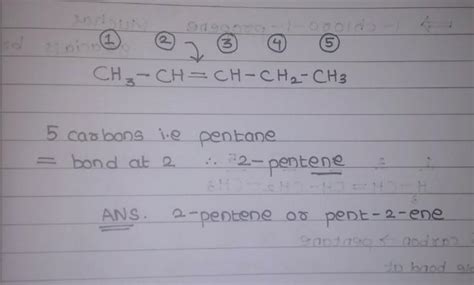 ① ② ③ ④ ⑤
CH₃-CH=CH-CH₂-CH₃
5 carbons i.e pentane
= bond at 2 ∴ 2-pentene
ANS. 2-pentene or pent-2-ene